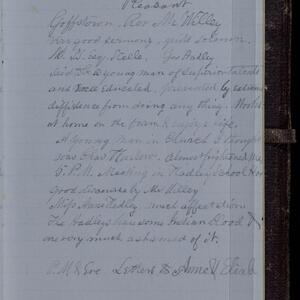 Pleasant
Goffstown. Rev Mr Willey
very good sermons, quite solemn.
Geo Hadley
said to be young man of superior talents
and well educated, prevented by extreme
diffidence from doing any thing. Works
at home on the farm & enjoys life.
A young man in Church I thought
was Chas almost frightened me
5. P.M. Meeting in Hadley School House
Good discourse by Mr Willey
Miss Hadley. much affectation
The Hadleys have some Indian blood &
are very much ashamed of it.
P.M & Eve Letters to Anne & Elizab